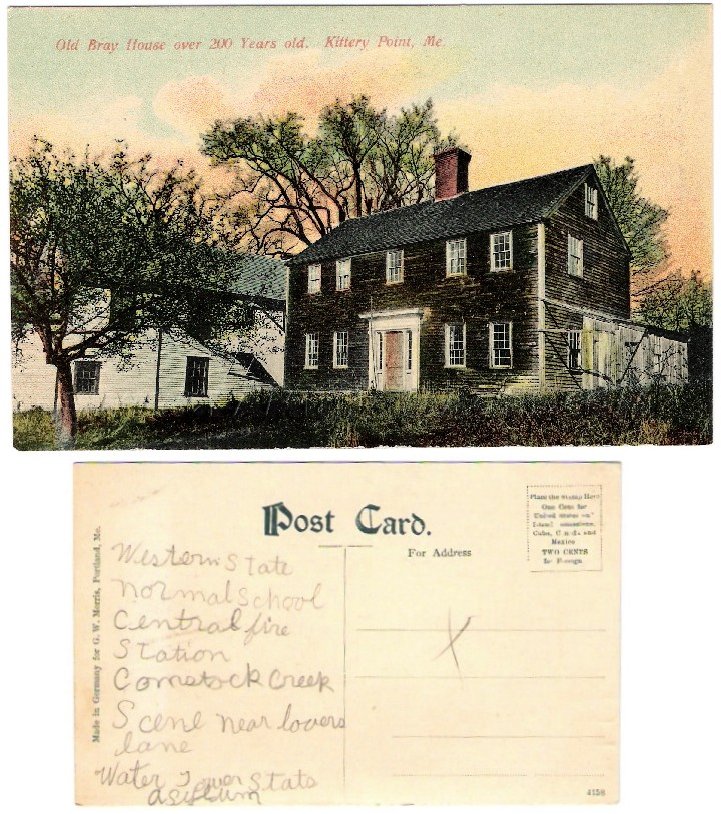 Old Bray House over 200 Years old. Kittery Point, Me.
Post Card.
For Address
Place the Stamp Here
One Cent for
United States and
Island
Cuba, Canada and
Mexico
TWO CENTS
for Foreign
Made in Germany for G. W. Morris, Portland, Me.
Western State
normal School
Central fire
Station
Comstock Creek
Scene near lovers
lane
Water Tower Stats
asyllum
X
4158